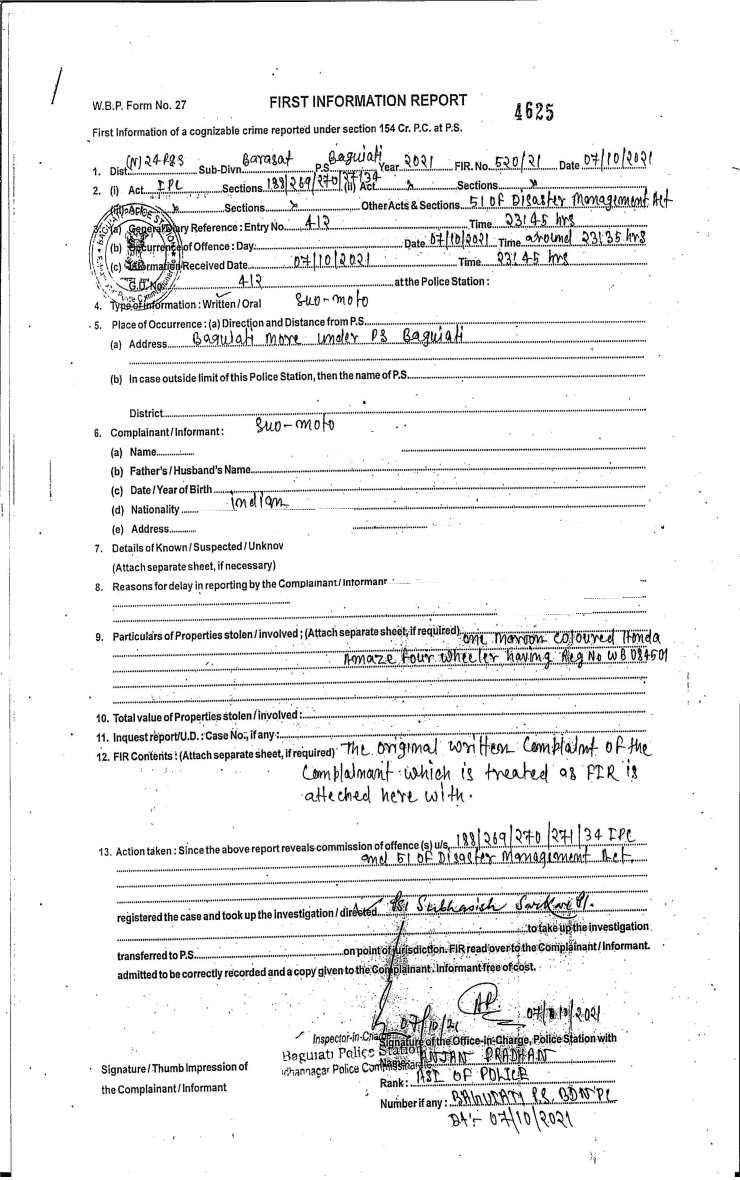 W.B.P. Form No. 27
FIRST INFORMATION REPORT
4625
First Information of a cognizable crime reported under section 154 Cr. P.C. at P.S.
1. Dist (N) 24 PGS Sub-Divn. Barasat P.S Baguiati Year 2021 FIR. No. 520/21 Date 07/10/2021
2. (i) Act IPC Sections 188/269/270/271/34 (ii) Act x Sections x
(iii) Act x Sections x Other Acts & Sections 51 of Disaster Management Act
3. (a) General Diary Reference : Entry No. 412 Time 23:45 hrs
(b) Occurrence of Offence : Day: Date 07/10/2021 Time around 23:35 hrs
(c) Information Received Date 07/10/2021 Time 23:45 hrs
G.D. No. 412 at the Police Station :
4. Type of Information : Written / Oral Suo-moto
5. Place of Occurrence : (a) Direction and Distance from P.S.
(a) Address Baguiati more under PS Baguiati
(b) In case outside limit of this Police Station, then the name of P.S.
District
6. Complainant / Informant : Suo-moto
(a) Name
(b) Father's / Husband's Name
(c) Date / Year of Birth
(d) Nationality indian
(e) Address
7. Details of Known / Suspected / Unknov
(Attach separate sheet, if necessary)
8. Reasons for delay in reporting by the Complainant / Informant
9. Particulars of Properties stolen / involved ; (Attach separate sheet, if required) one Maroon coloured Honda
Amaze four wheeler having Reg No WB084501
10. Total value of Properties stolen / involved :
11. Inquest report/U.D. : Case No., if any :
12. FIR Contents : (Attach separate sheet, if required) The original written complaint of the
Complainant which is treated as FIR is
atteched here with.
13. Action taken : Since the above report reveals commission of offence (s) u/s. 188/269/270/271/34 IPC
and 51 of Disaster Management Act.
registered the case and took up the investigation / directed Subhasish Sarkar
to take up the investigation
transferred to P.S. on point of jurisdiction. FIR read over to the Complainant / Informant.
admitted to be correctly recorded and a copy given to the Complainant. Informant free of cost.
07/10/21
07/10/2021
Inspector-in-Charge
Signature of the Office-in-Charge, Police Station with
Baguiati Police Station
Name ANJAN PRADHAN
idhannagar Police Commissionerate
Signature / Thumb Impression of
Rank : ASI OF POLICE
the Complainant / Informant
Number if any : BAGUIATI P.S. BDNPC
DA:- 07/10/2021